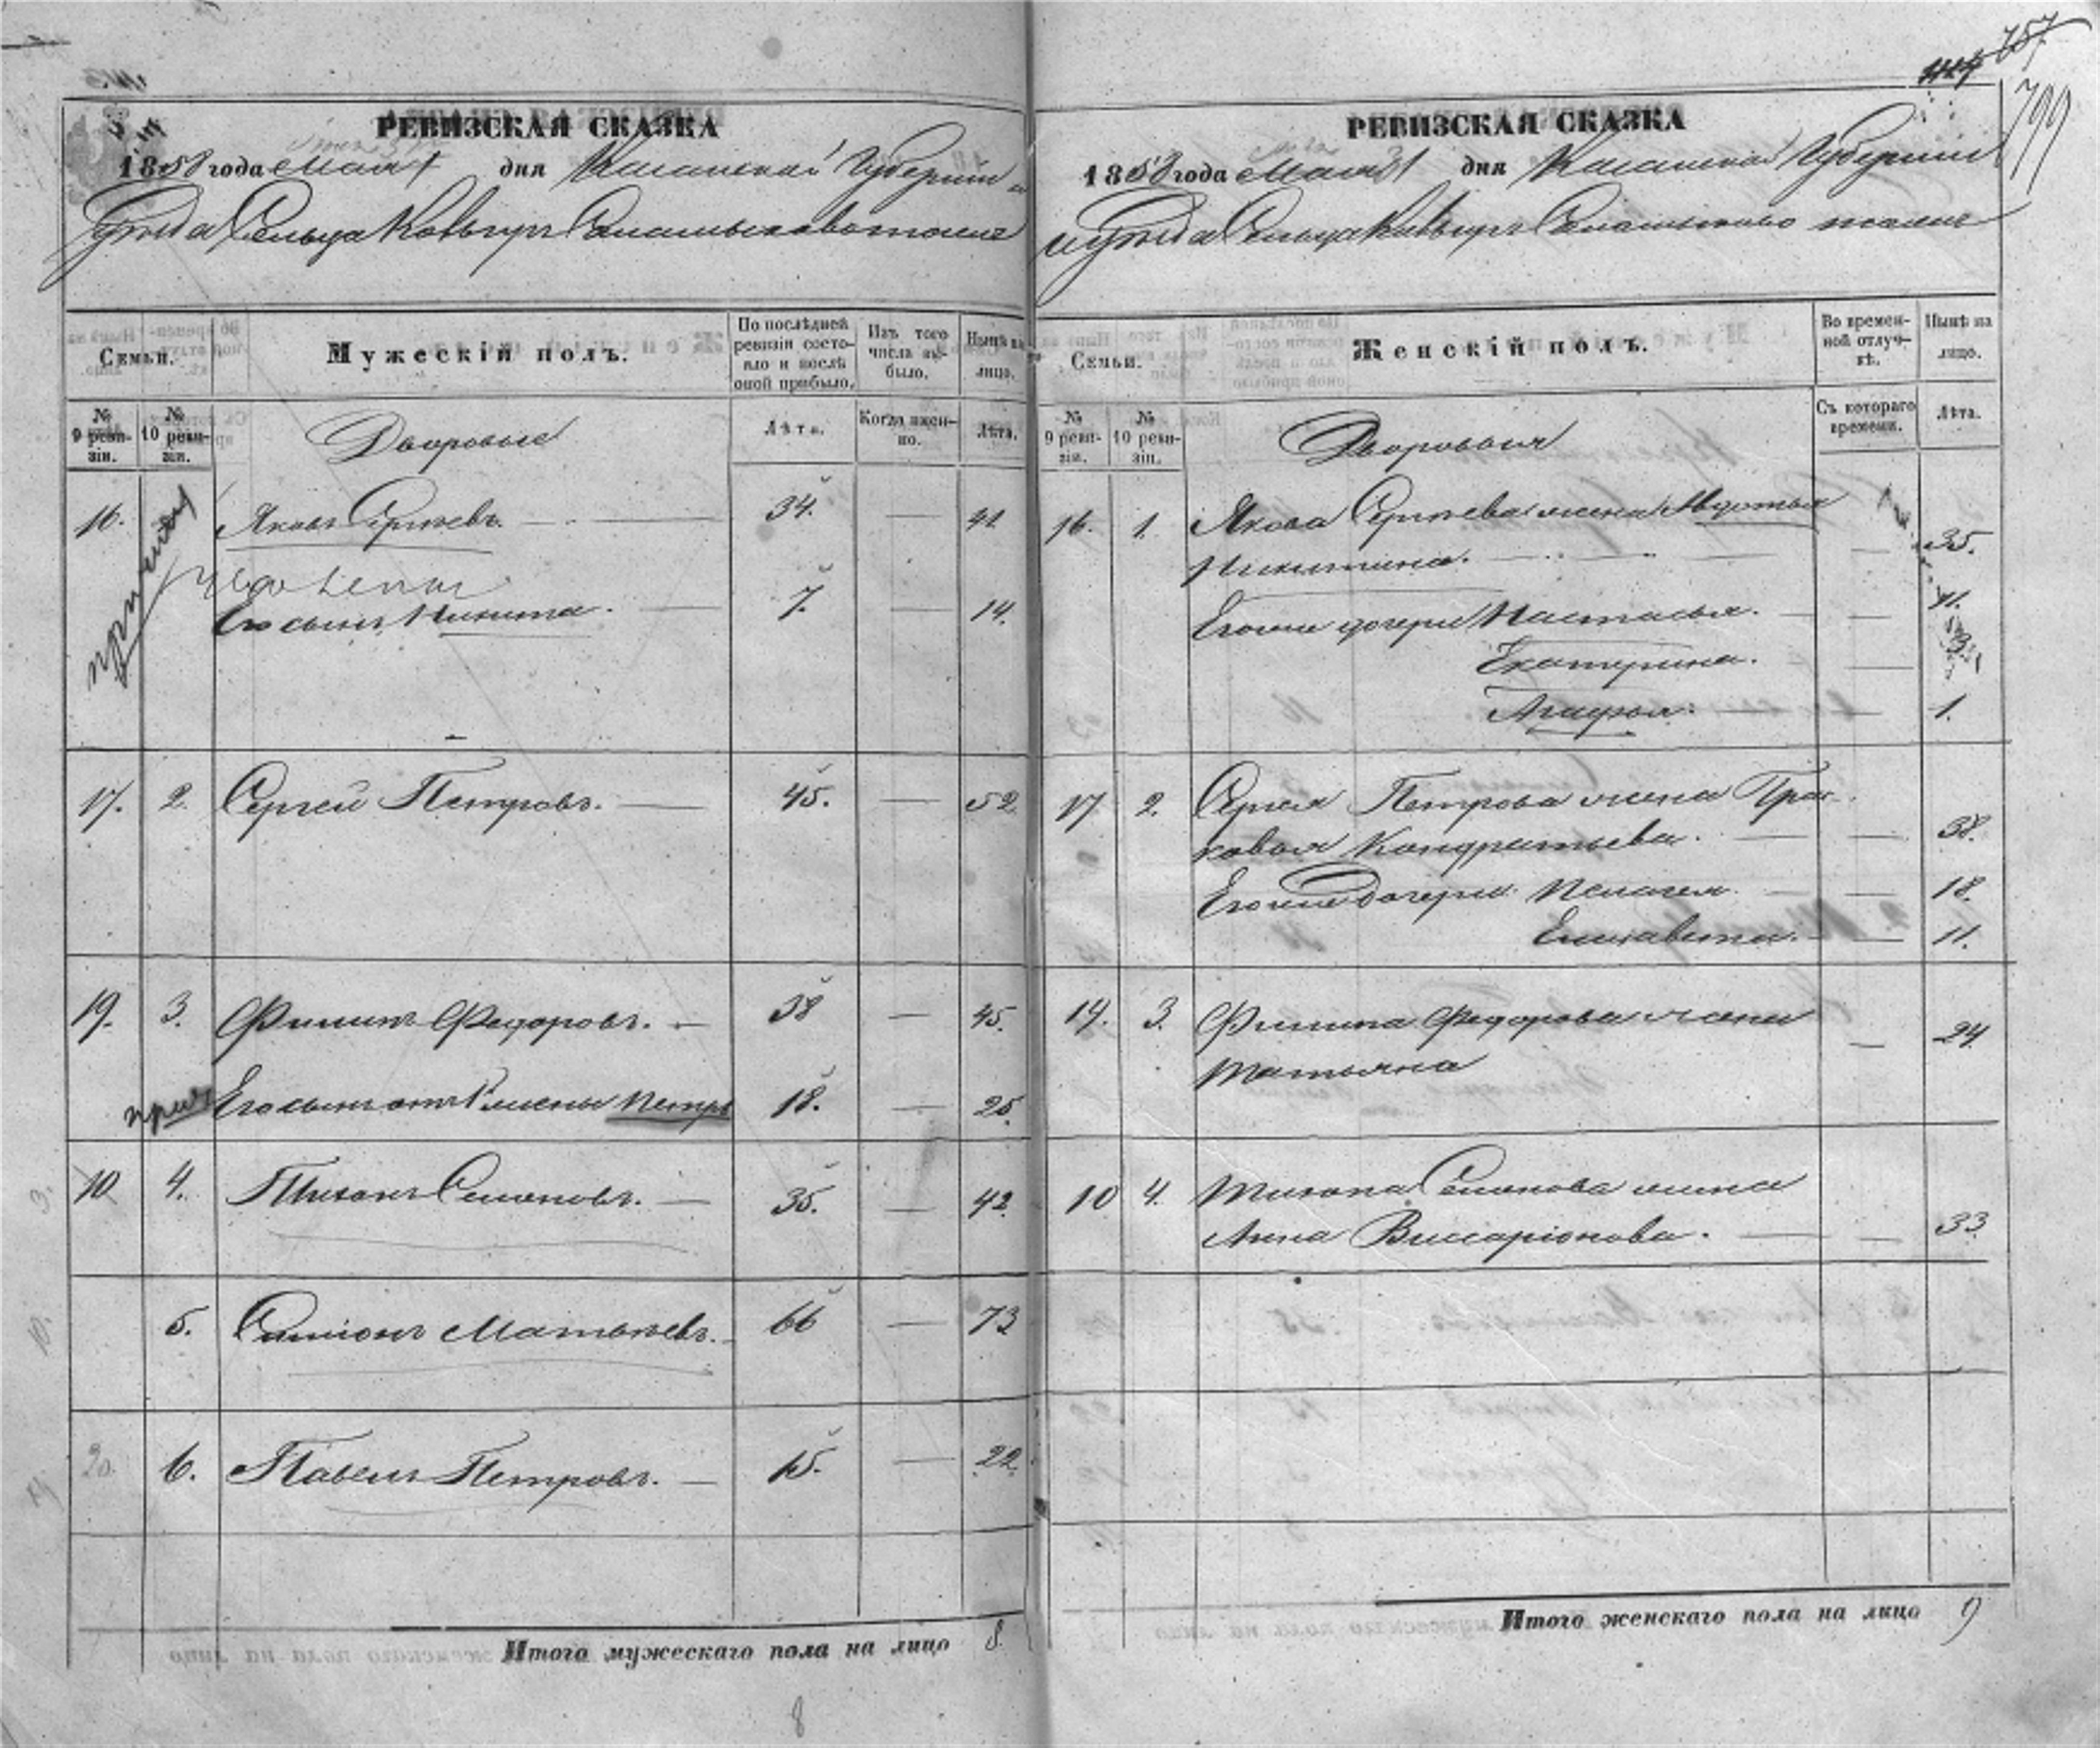 РЕВИЗСКАЯ СКАЗКА
1858 года Мая дня Казанской Губерніи
Уѣзда Сельца
Семьи.
Мужескій полъ.
По послѣдней ревизіи состояло и послѣ оной прибыло.
Изъ того числа выбыло.
Нынѣ на лицо.
№ 9 ревизіи.
№ 10 ревизіи.
Дворовые
Лѣта.
Когда именно.
Лѣта.
16. Яковъ Сергѣевъ. 34. — 41
Его сынъ Никита. 7. — 14.
17. 2. Сергей Петровъ. 45. — 52
19. 3. Филипъ Федоровъ. 38 — 45.
Его сынъ отъ 1 жены Петръ 18. — 25
10 4. Тихонъ Семеновъ. 35. — 42.
5. Симіонъ Матвѣевъ. 66 — 73
20. 6. Павелъ Петровъ. 15. — 22.
Итого мужескаго пола на лицо 8.
8
757
799
РЕВИЗСКАЯ СКАЗКА
1858 года Мая дня Казанской Губерніи
уѣзда Сельца
Семьи.
Женскій полъ.
Во временной отлучкѣ.
Нынѣ на лицо.
№ 9 ревизіи.
№ 10 ревизіи.
Дворовыя
Съ котораго времени.
Лѣта.
16. 1. Якова Сергѣева жена Авдотья
Никитина. — 35.
Его же дочери Настасья. — 11.
Екатерина. — 3.
Агафья. — 1.
17 2. Сергея Петрова жена Прас-
ковья Кондратьева. — 38.
Его же дочери Пелагея — 18.
Елизавета. — 11.
19. 3. Филипа Федорова жена
Татьяна — 24.
10 4. Тихона Семенова жена
Анна Виссаріонова. — 33.
Итого женскаго пола на лицо 9